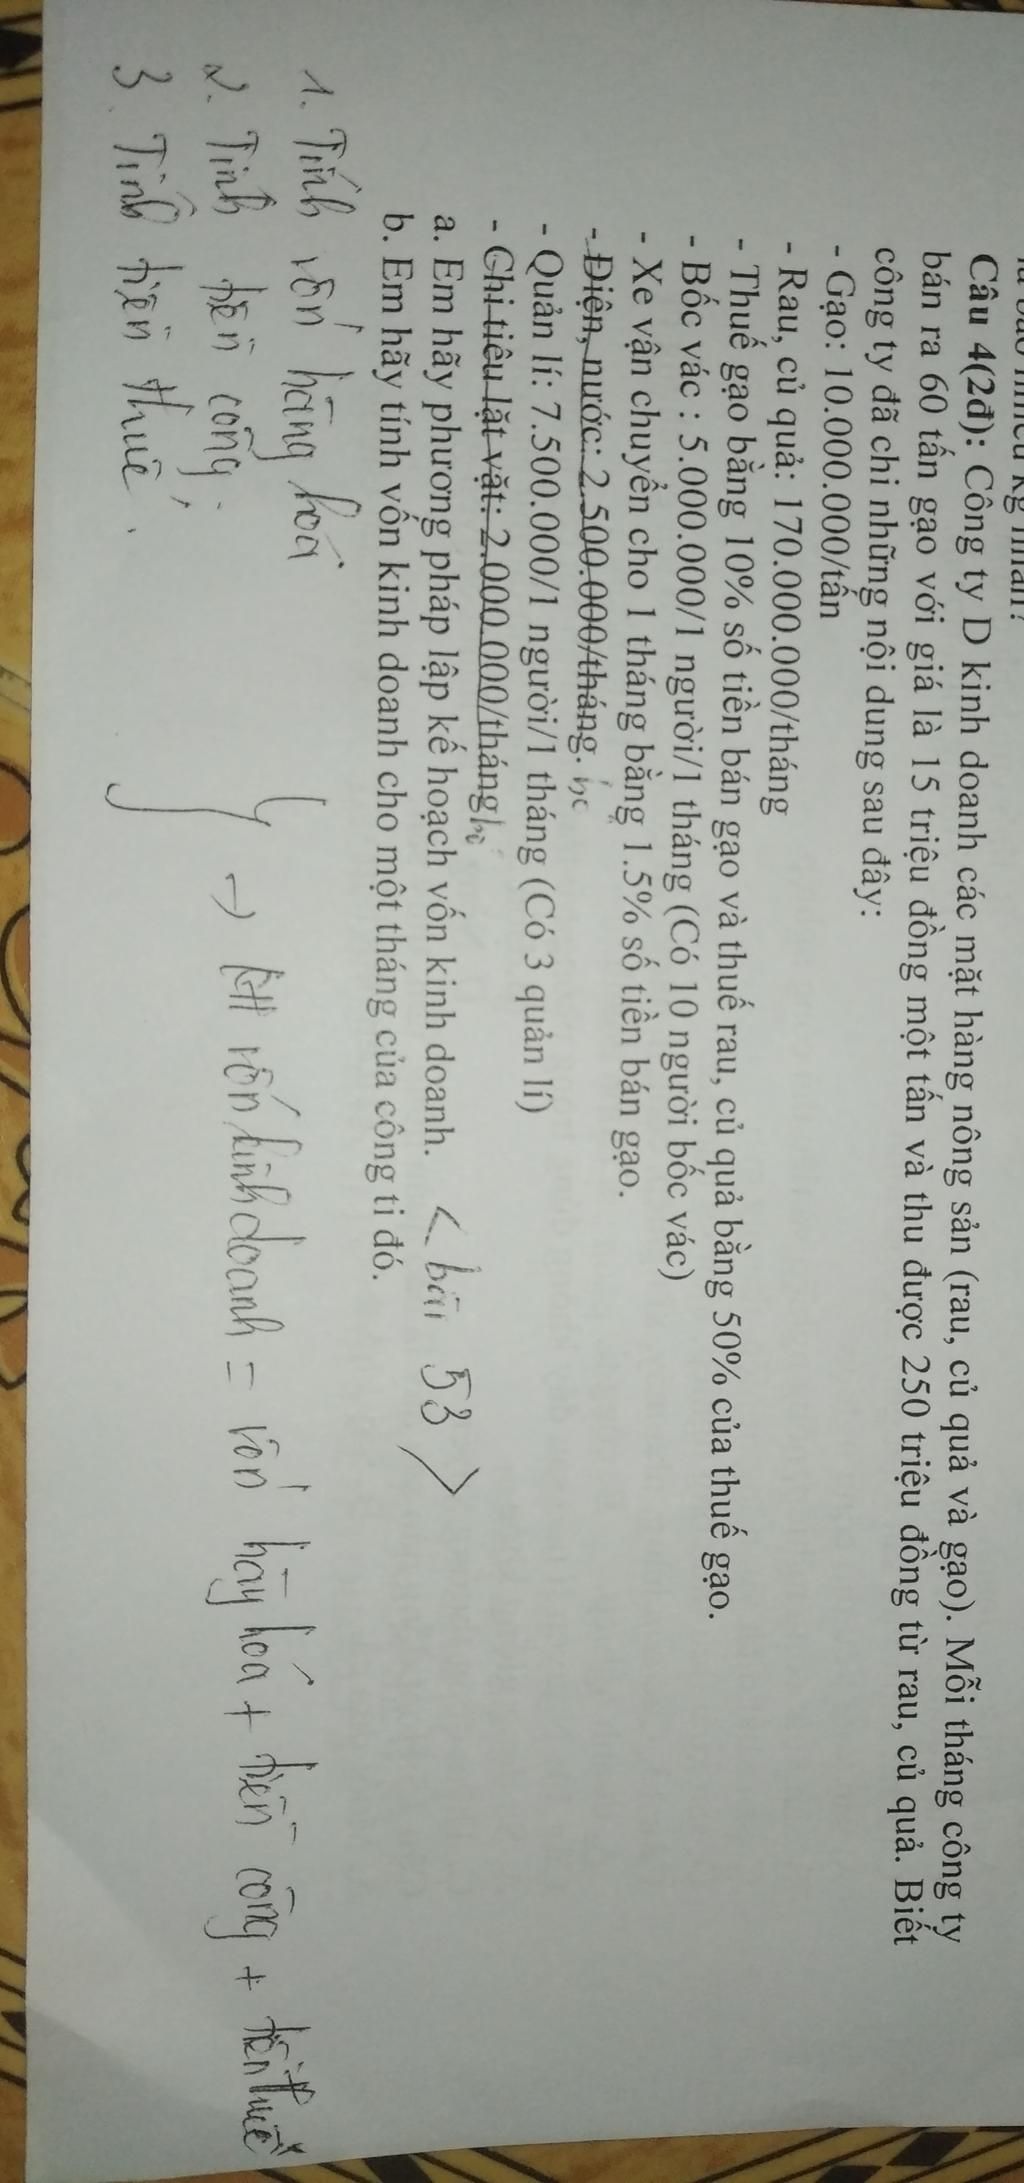 Câu 4(2đ): Công ty D kinh doanh các mặt hàng nông sản (rau, củ quả và gạo). Mỗi tháng công ty
bán ra 60 tấn gạo với giá là 15 triệu đồng một tấn và thu được 250 triệu đồng từ rau, củ quả. Biết
công ty đã chi những nội dung sau đây:
- Gạo: 10.000.000/tấn
- Rau, củ quả: 170.000.000/tháng
- Thuế gạo bằng 10% số tiền bán gạo và thuế rau, củ quả bằng 50% của thuế gạo.
- Bốc vác : 5.000.000/1 người/1 tháng (Có 10 người bốc vác)
- Xe vận chuyển cho 1 tháng bằng 1.5% số tiền bán gạo.
- Điện, nước: 2.500.000/tháng.
- Quản lí: 7.500.000/1 người/1 tháng (Có 3 quản lí)
- Chi tiêu lặt vặt: 2.000.000/tháng
a. Em hãy phương pháp lập kế hoạch vốn kinh doanh. < bài 53 >
b. Em hãy tính vốn kinh doanh cho một tháng của công ti đó.
1. Tính vốn hàng hoá
2. Tính tiền công
3. Tính tiền thuế.
→ KH vốn kinh doanh = vốn hàng hoá + tiền công + tiền thuế